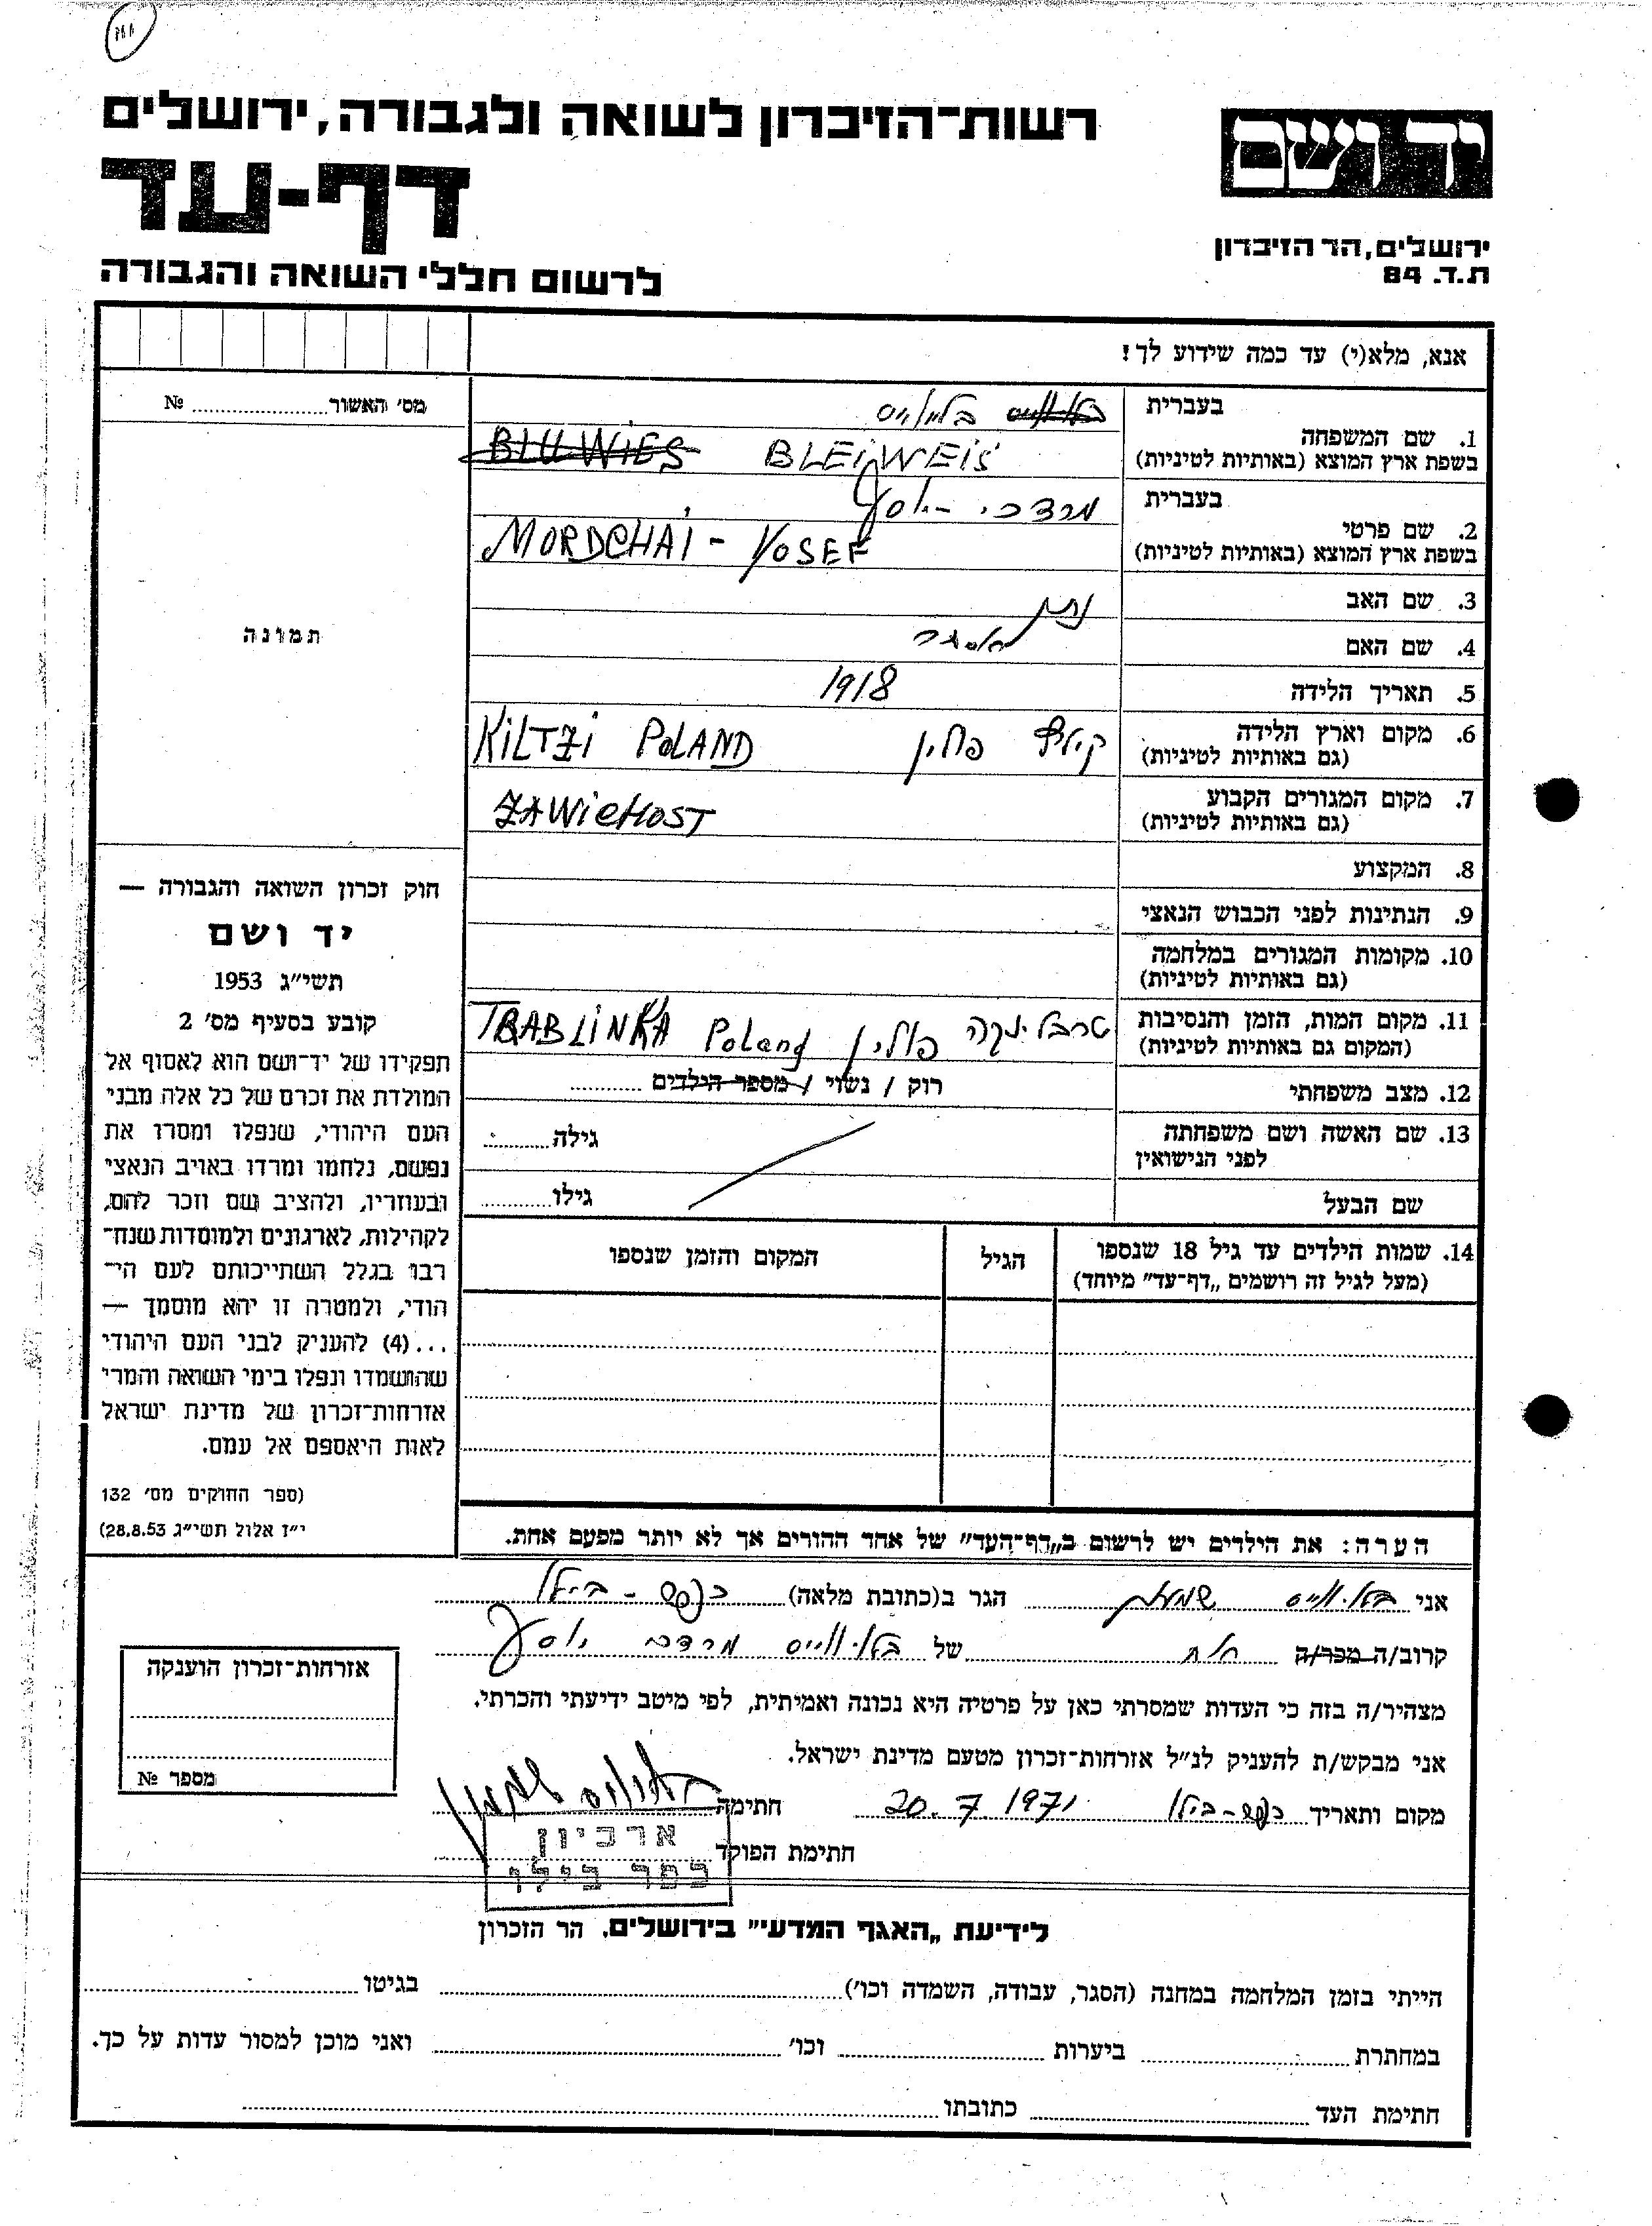 רשות־הזיכרון לשואה ולגבורה, ירושלים
דף-עד
לרשום חללי השואה והגבורה
יד ושם
ירושלים, הר הזיכרון
ת.ד. 84
אנא, מלא(י) עד כמה שידוע לך!
מס' האשור № 
תמונה
בעברית בלייוייס
1. שם המשפחה
בשפת ארץ המוצא (באותיות לטיניות) BLUWIES BLEIWEIS
בעברית מרדכי - יוסף
2. שם פרטי
בשפת ארץ המוצא (באותיות לטיניות) MORDCHAI - YOSEF
3. שם האב נתן
4. שם האם
5. תאריך הלידה 1918
6. מקום וארץ הלידה
(גם באותיות לטיניות) פולין KILTZI POLAND
7. מקום המגורים הקבוע
(גם באותיות לטיניות) ZAWICHOST
8. המקצוע
9. הנתינות לפני הכבוש הנאצי
10. מקומות המגורים במלחמה
(גם באותיות לטיניות)
11. מקום המות, הזמן והנסיבות
(המקום גם באותיות לטיניות) טרבלינקה פולין Poland TRABLINKA
12. מצב משפחתי רוק / נשוי / מספר הילדים
13. שם האשה ושם משפחתה
לפני הנישואין גילה
שם הבעל גילו
14. שמות הילדים עד גיל 18 שנספו
(מעל לגיל זה רושמים „דף־עד" מיוחד)
הגיל
המקום והזמן שנספו
חוק זכרון השואה והגבורה —
יד ושם
תשי"ג 1953
קובע בסעיף מס' 2
תפקידו של יד־ושם הוא לאסוף אל
המולדת את זכרם של כל אלה מבני
העם היהודי, שנפלו ומסרו את
נפשם, נלחמו ומרדו באויב הנאצי
ובעוזריו, ולהציב שם וזכר להם,
לקהילות, לארגונים ולמוסדות שנח־
רבו בגלל השתייכותם לעם הי־
הודי, ולמטרה זו יהא מוסמך —
...(4) להעניק לבני העם היהודי
שהושמדו ונפלו בימי השואה והמרי
אזרחות־זכרון של מדינת ישראל
לאות היאספם אל עמם.
(ספר החוקים מס' 132
י"ז אלול תשי"ג 28.8.53)
הערה: את הילדים יש לרשום ב„דף־העד" של אחד ההורים אך לא יותר מפעם אחת.
אני בלייוייס שמעון הגר ב(כתובת מלאה) כפר - בילו
קרוב/ה מכר/ה אח של בלייוייס מרדכי יוסף
מצהיר/ה בזה כי העדות שמסרתי כאן על פרטיה היא נכונה ואמיתית, לפי מיטב ידיעתי והכרתי.
אני מבקש/ת להעניק לנ"ל אזרחות־זכרון מטעם מדינת ישראל.
מקום ותאריך כפר-בילו 20.7.1971 חתימה
חתימת הפוקד
ארכיון
כפר בילו
אזרחות־זכרון הוענקה
מספר №
לידיעת „האגף המדעי" בירושלים, הר הזכרון
הייתי בזמן המלחמה במחנה (הסגר, עבודה, השמדה וכו') בגיטו
במחתרת ביערות וכו' ואני מוכן למסור עדות על כך.
חתימת העד כתובתו